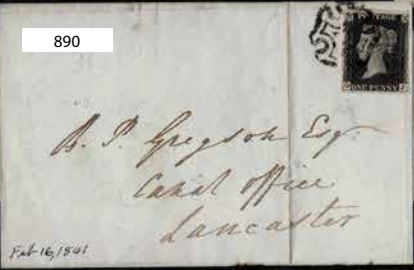 890
POSTAGE
ONE PENNY
B. P. Gregson Esq
Canal Office
Lancaster
Feb 16, 1841